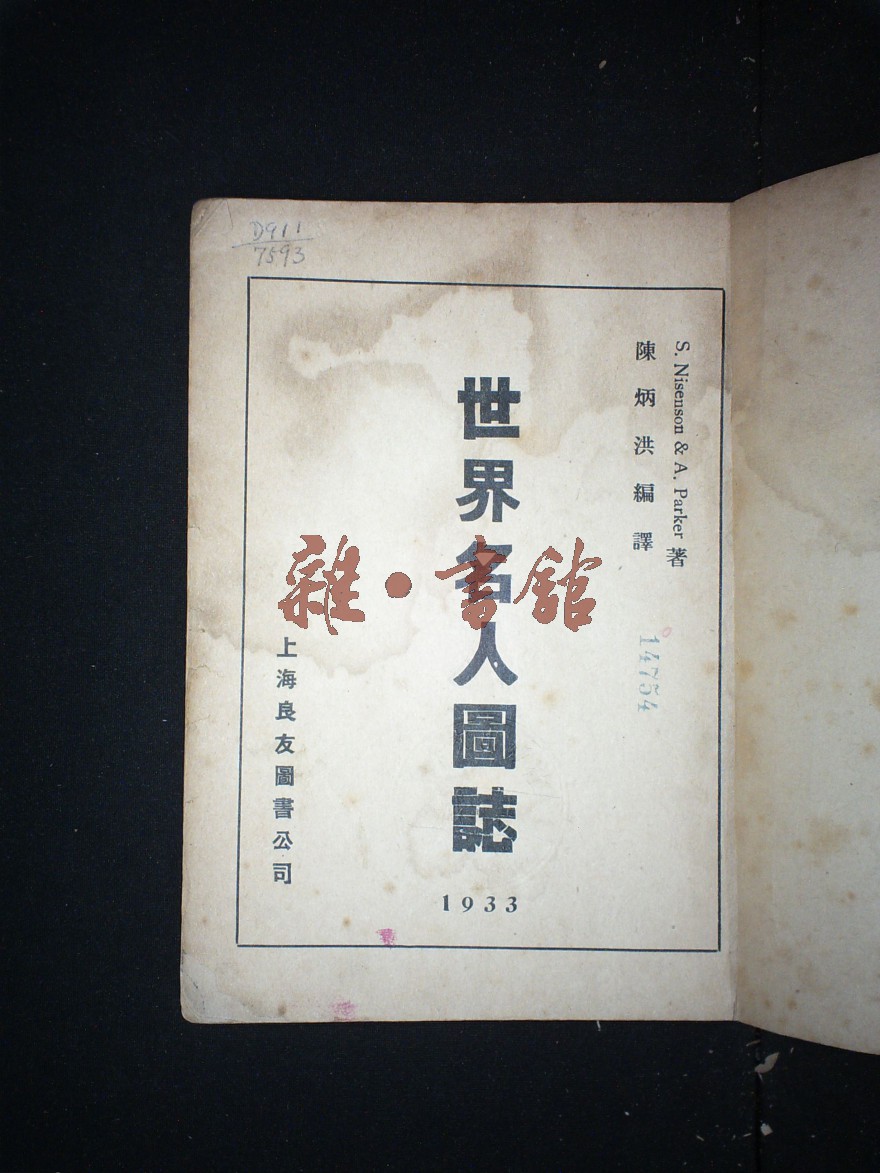 D911
7593
S. Nisenson & A. Parker 著
陳炳洪編譯
14754
世界名人圖誌
1933
上海良友圖書公司
雜·書館